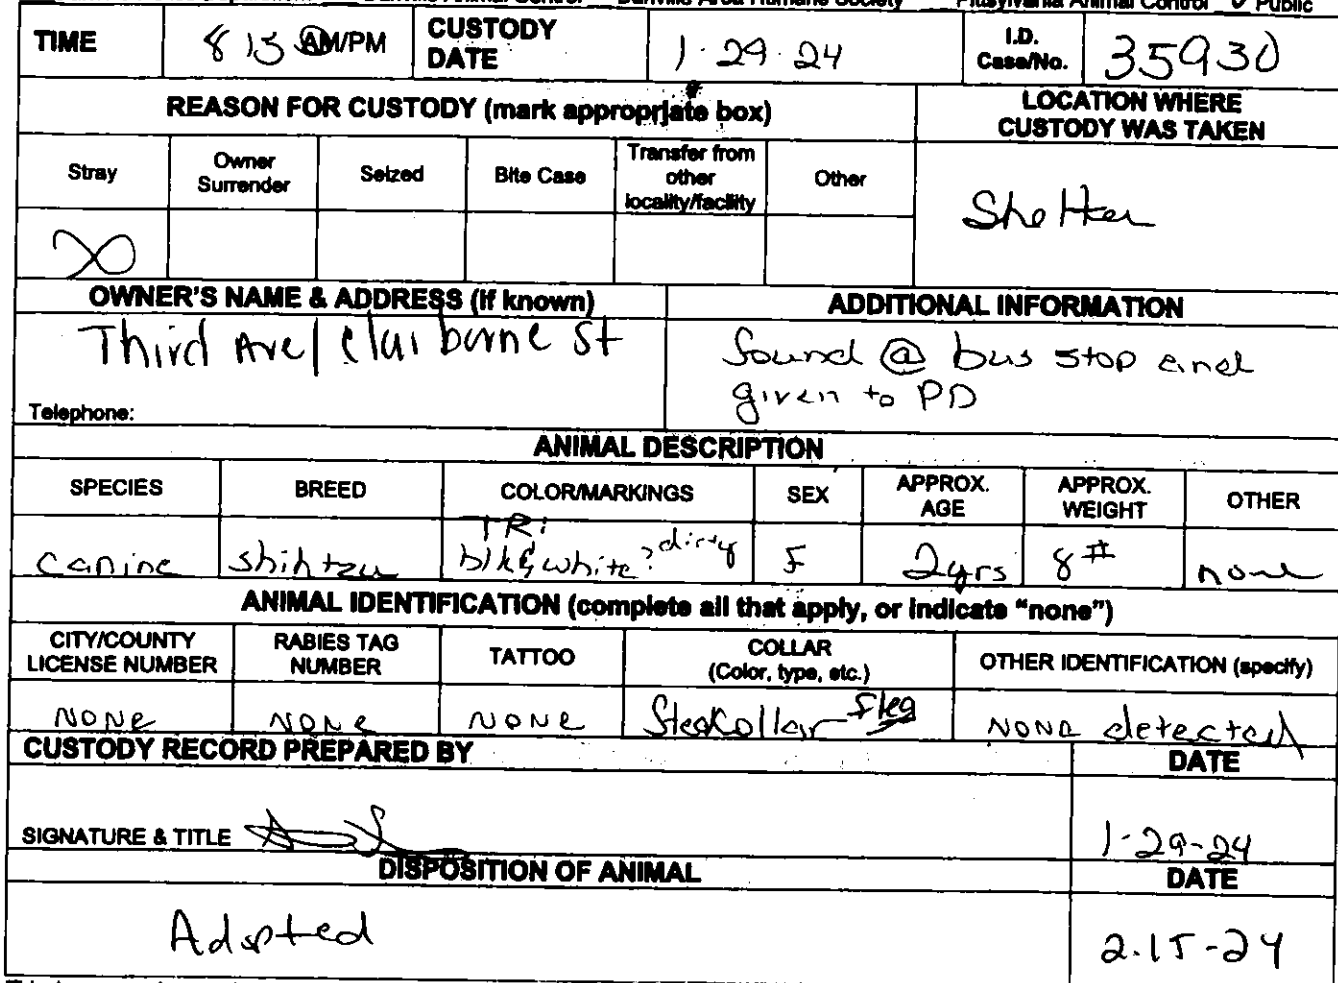 Danville Animal Control Danville Area Humane Society Pittsylvania Animal Control ✓ Public
TIME 8 15 AM/PM CUSTODY DATE 1-29-24 I.D. Case/No. 35930
REASON FOR CUSTODY (mark appropriate box) LOCATION WHERE CUSTODY WAS TAKEN
Stray Owner Surrender Seized Bite Case Transfer from other locality/facility Other
X Shelter
OWNER'S NAME & ADDRESS (if known) ADDITIONAL INFORMATION
Third Ave/Claiborne St found @ bus stop and
given to PD
Telephone:
ANIMAL DESCRIPTION
SPECIES BREED COLOR/MARKINGS SEX APPROX. AGE APPROX. WEIGHT OTHER
TRI
canine shihtzu blk & white? dirty F 2yrs 8# none
ANIMAL IDENTIFICATION (complete all that apply, or indicate "none")
CITY/COUNTY LICENSE NUMBER RABIES TAG NUMBER TATTOO COLLAR (Color, type, etc.) OTHER IDENTIFICATION (specify)
NONE NONE NONE Collar flea NONE detected
CUSTODY RECORD PREPARED BY DATE
SIGNATURE & TITLE 1-29-24
DISPOSITION OF ANIMAL DATE
Adopted 2-15-24